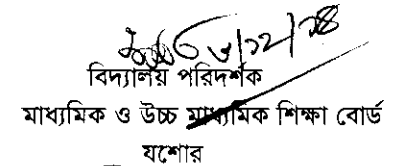 ৮/১২/২৪
বিদ্যালয় পরিদর্শক
মাধ্যমিক ও উচ্চ মাধ্যমিক শিক্ষা বোর্ড
যশোর